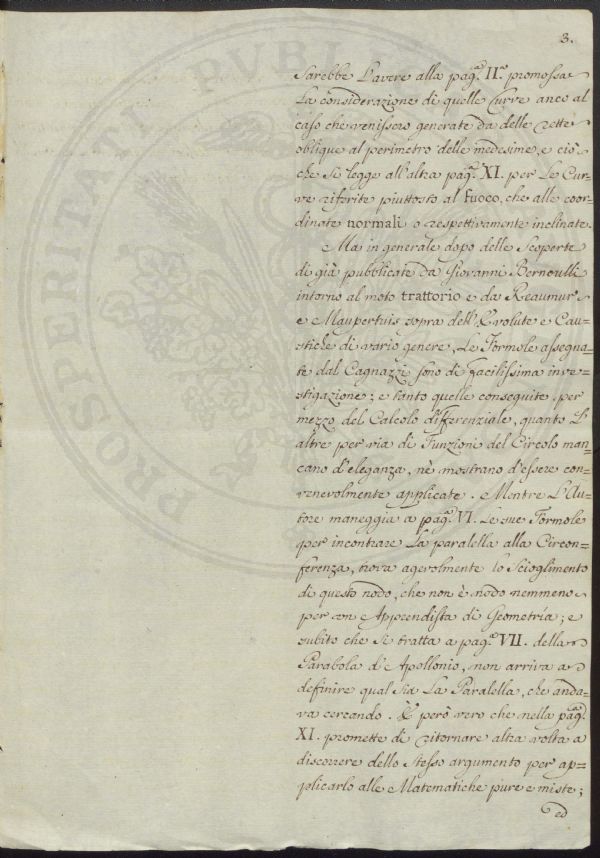 3.
Sarebbe L'avere alla pag.ª II.ª promossa
La considerazione di quelle Curve anco al
caso che venissero generate da delle rette
oblique al perimetro delle medesime, e ciò
che si legge all'altra pag.ª XI. per Le Cur=
ve riferite piuttosto al fuoco, che alle coor=
dinate normali o respettivamente inclinate.
Ma in generale dopo delle Scoperte
di già pubblicate da Giovanni Bernoulli
intorno al moto trattorio e da Reaumur
e Maupertuis sopra dell'Evolute e Cau=
stiche di vario genere, Le Formole assegna=
te dal Cagnazzi sono di facilissima inve=
stigazione; e tanto quelle conseguite per
mezzo del Calcolo differenziale, quanto L'
altre per via di Funzioni del Circolo man=
cano d'eleganza, nè mostrano d'essere con=
venevolmente applicate. Mentre L'Au=
tore maneggia a pag.ª VI. Le sue Formole
per incontrare La paralella alla Circon=
ferenza, trova agevolmente lo Scioglimento
di questo nodo, che non è nodo nemmeno
per un Apprendista di Geometria; e
subito che si tratta a pag.ª VII. della
Parabola d'Apollonio, non arriva a
definire qual sia La Paralella, che anda=
va cercando. E però vero che nella pag.ª
XI. promette di ritornare altra volta a
discorrere dello Stesso argumento per ap=
plicarlo alle Matematiche pure e miste;
ed
PROSPERITATI PVBLI